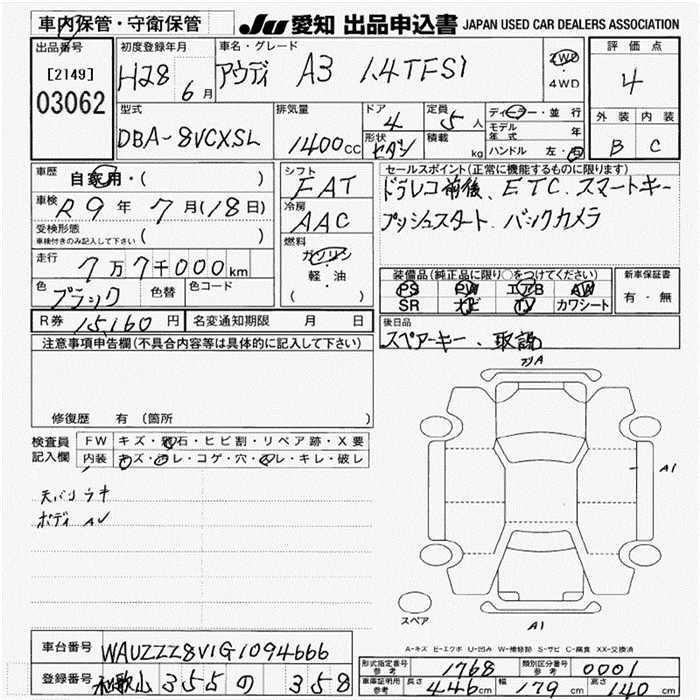 車内保管・守衛保管 JU 愛知 出品申込書 JAPAN USED CAR DEALERS ASSOCIATION
出品番号 初度登録年月 車名・グレード 評価点
[2149] H28 6月 アウディ A3 1.4TFSI 2WD・4WD 4
03062
型式 排気量 ドア 定員 ディーラー・並行 外装 内装
DBA-8VCXSL 1400cc 4 5人 モデル年式 年 B C
形状 セダン 積載 kg ハンドル 左・右
車歴 自家用・( ) シフト FAT セールスポイント(正常に機能するものに限ります)
車検 R9年7月(18日) 冷房 AAC ドラレコ前後、ETC、スマートキー
受検形態 プッシュスタート、バックカメラ
車検付きのみ記入して下さい ( ) 燃料
走行 7万7千000km ガソリン 装備品(純正品に限り○をつけてください) 新車保証書
軽・油 PS PW エアB AW 有・無
色 ブラック 色替 色コード ( ) SR ナビ TV カワシート
R券 15,160円 名変通知期限 月 日 後日品
スペアーキー、取説
注意事項申告欄(不具合内容等は具体的に記入して下さい)
A
修復歴 有 (箇所 )
検査員 FW キズ・飛石・ヒビ割・リペア跡・X要
記入欄 内装 キズ・ヨレ・コゲ・穴・スレ・キレ・破レ
A1
ボディ
スペア
A1
A-キズ E-エクボ U-凹み W-補修跡 S-サビ C-腐食 XX-交換済
車台番号 WAUZZZ8V1G1094666
型式指定番号 参考 1768 類別区分番号 参考 0001
登録番号 和歌山 355 の 358
車庫証明用 参考 長さ 446cm 幅 179cm 高さ 140cm